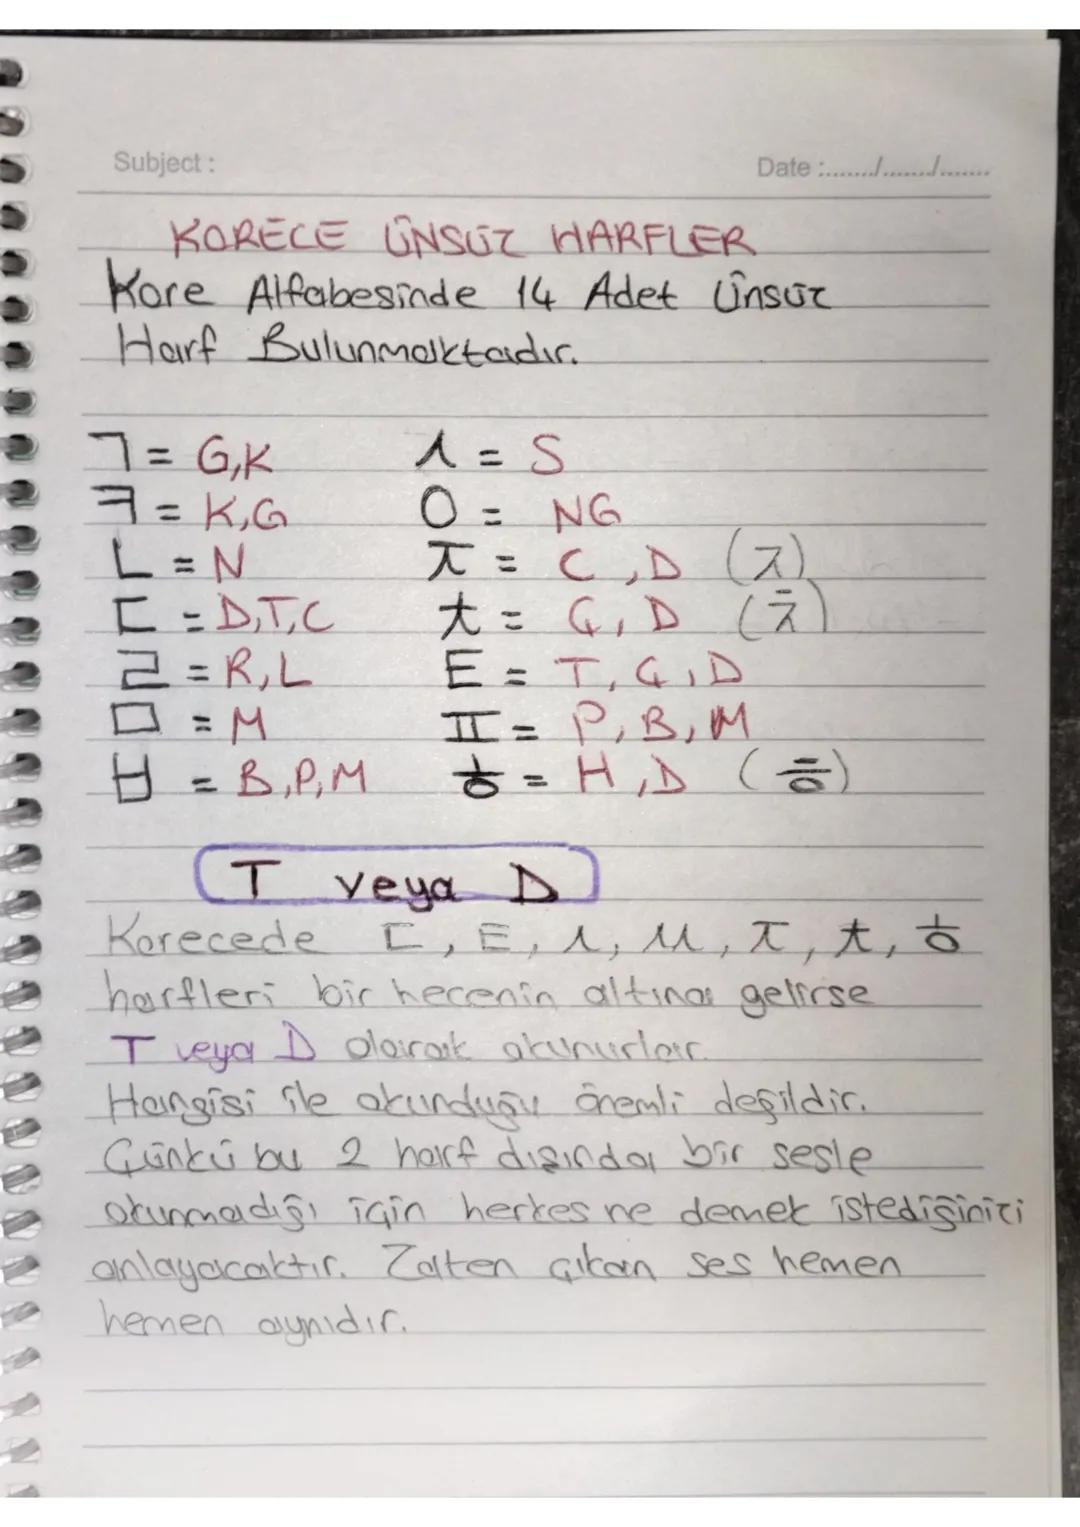 Subject :
Date :......../......../........
KORECE ÜNSÜZ HARFLER
Kore Alfabesinde 14 Adet Ünsüz
Harf Bulunmaktadır.
ㄱ = G,K ㅅ = S
ㅋ = K,G ㅇ = NG
ㄴ = N ㅈ = C,D (ㅈ)
ㄷ = D,T,C ㅊ = Ç,D (ㅊ)
ㄹ = R,L ㅌ = T,Ç,D
ㅁ = M ㅍ = P,B,M
ㅂ = B,P,M ㅎ = H,D (ㅎ)
T veya D
Korecede ㄷ, ㅌ, ㅅ, ㅆ, ㅈ, ㅊ, ㅎ
harfleri bir hecenin altına gelirse
T veya D olarak okunurlar.
Hangisi ile okunduğu önemli değildir.
Çünkü bu 2 harf dışında bir sesle
okunmadığı için herkes ne demek istediğinizi
anlayacaktır. Zaten çıkan ses hemen
hemen aynıdır.